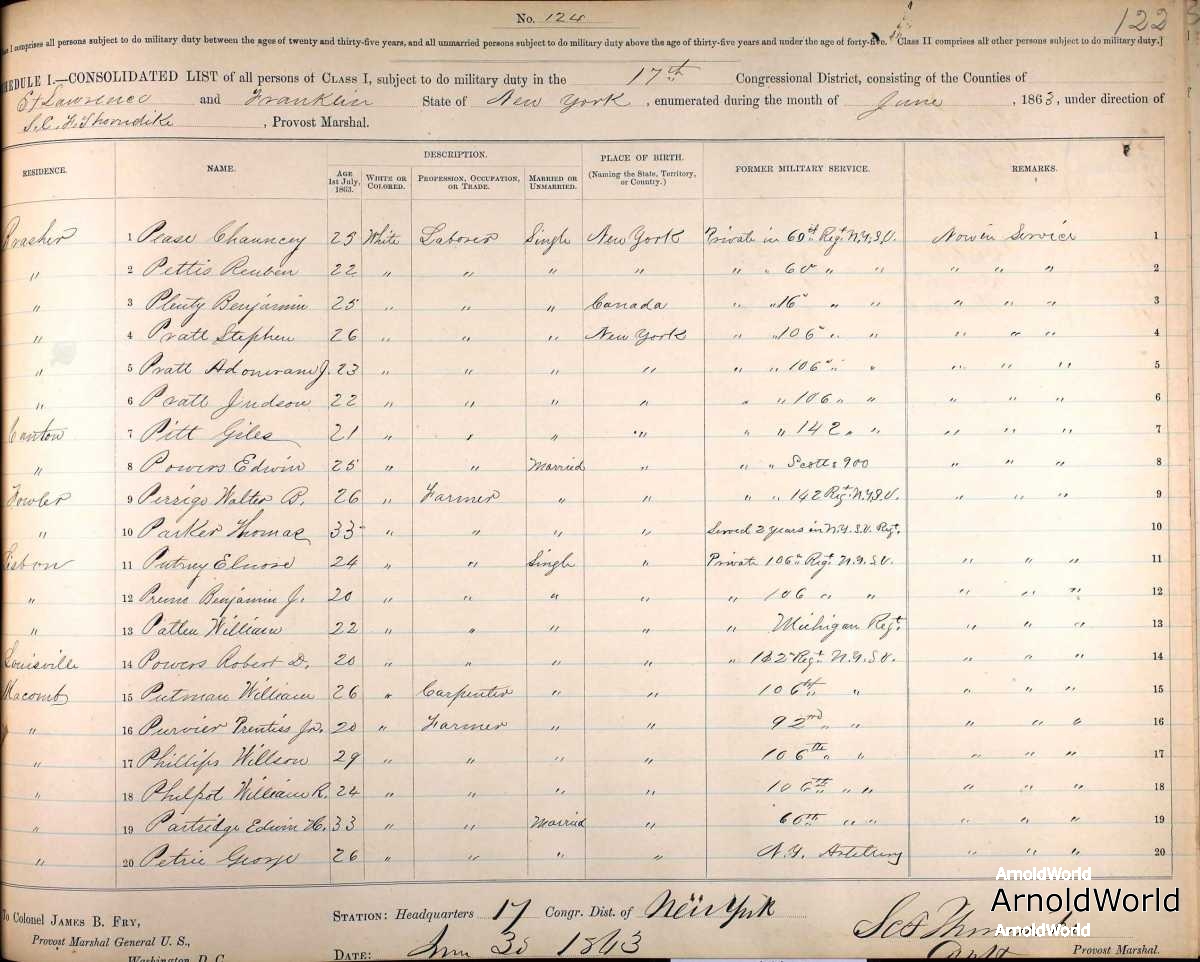 No. 124
122
Class I comprises all persons subject to do military duty between the ages of twenty and thirty-five years, and all unmarried persons subject to do military duty above the age of thirty-five years and under the age of forty-five. Class II comprises all other persons subject to do military duty.]
SCHEDULE I.—CONSOLIDATED LIST of all persons of CLASS I, subject to do military duty in the 17th Congressional District, consisting of the Counties of
St Lawrence and Franklin State of New York, enumerated during the month of June, 1863, under direction of
S.C. F. Thorndike, Provost Marshal.
RESIDENCE. NAME. DESCRIPTION. PLACE OF BIRTH. FORMER MILITARY SERVICE. REMARKS.
AGE 1st July, 1863. WHITE OR COLORED. PROFESSION, OCCUPATION, OR TRADE. MARRIED OR UNMARRIED. (Naming the State, Territory, or Country.)
Brasher 1 Pease Chauncey 25 White Laborer Single New York Private in 60th Regt N.Y.S.V. Now in Service 1
" 2 Pettis Reuben 22 " " " " " " 60 " " " " " 2
" 3 Plenty Benjamin 25 " " " Canada " " 16 " " " " " 3
" 4 Pratt Stephen 26 " " " New York " " 106 " " " " " 4
" 5 Pratt Adoniram J. 23 " " " " " " 106 " " " " " 5
" 6 Pratt Judson 22 " " " " " " 106 " " " " " 6
Canton 7 Pitt Giles 21 " " " " " " 142 " " " " " 7
" 8 Powers Edwin 25 " " Married " " " Scotts 900 " " " 8
Fowler 9 Perrigo Walter B. 26 " Farmer " " " " 142 Regt. N.Y.S.V. " " " 9
" 10 Parker Thomas 33 " " " " Served 2 years in N.Y.S.V. Regt. 10
Lisbon 11 Putney Elmore 24 " " Single " Private 106th Regt N.Y.S.V. " " " 11
" 12 Benjamin J. 20 " " " " " 106 " " " " " 12
" 13 Patten William 22 " " " " " Michigan Regt. " " " 13
Louisville 14 Powers Robert D. 20 " " " " " 142 Regt. N.Y.S.V. " " " 14
Macomb 15 Putman William 26 " Carpenter " " 106th " " " " " 15
" 16 Purvier Prentiss Jr. 20 " Farmer " " 92nd " " " " " 16
" 17 Phillips Willson 29 " " " " 106th " " " " " 17
" 18 Philpot William R. 24 " " " " 106th " " " " " 18
" 19 Partridge Edwin H. 33 " " Married " 60th " " " " " 19
" 20 Petrie George 26 " " " " N.Y. Artillery " " " 20
To Colonel JAMES B. FRY,
Provost Marshal General U. S.,
Washington, D. C.
STATION: Headquarters 17 Congr. Dist. of New York
DATE: June 30 1863
Capt Provost Marshal.
ArnoldWorld
ArnoldWorld
ArnoldWorld